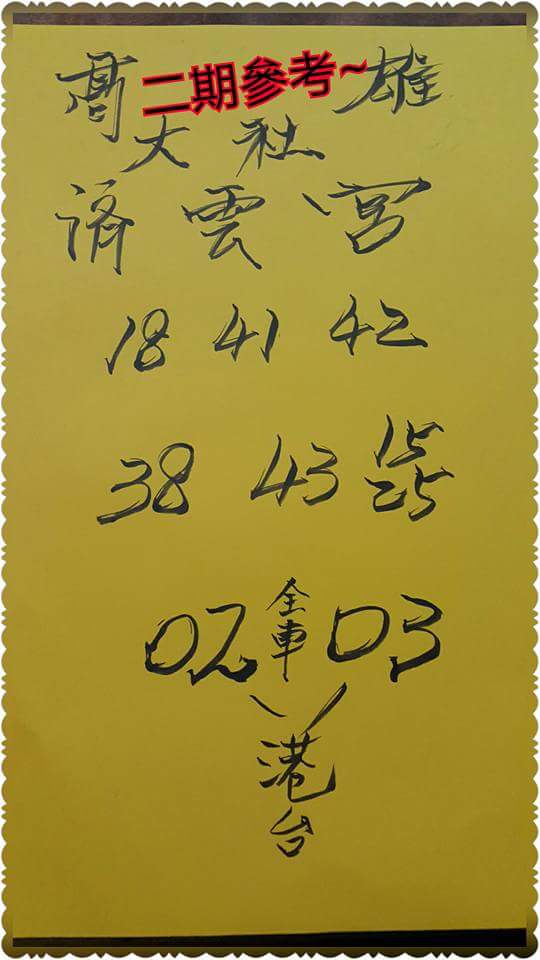 二期參考~
高雄
大社
濟雲宮
18 41 42
38 43 15
25
02 全車 03
港台